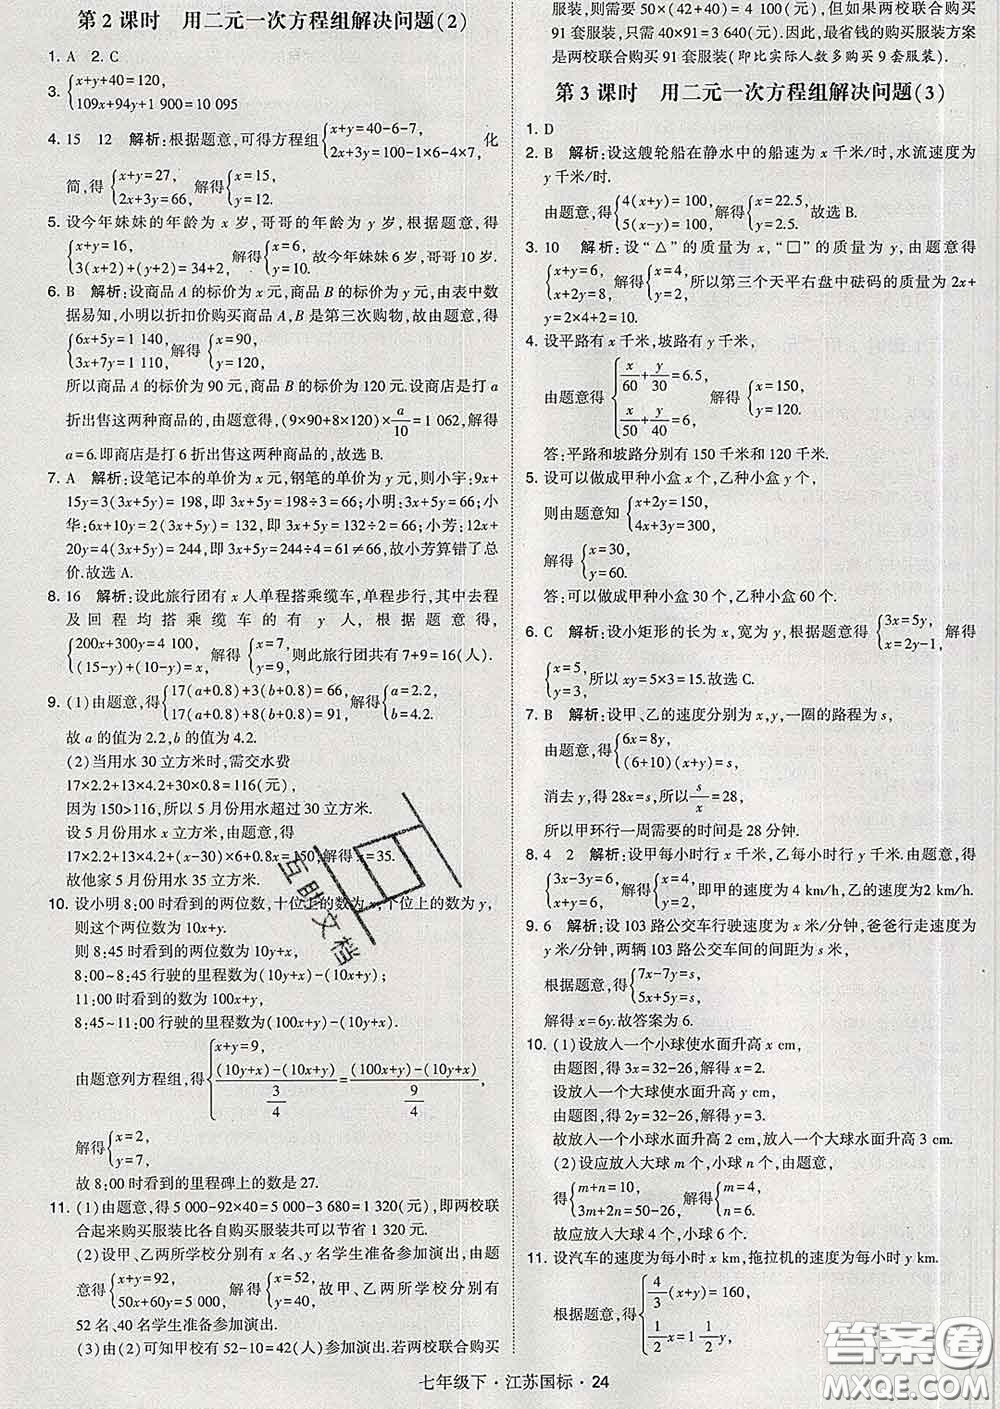 第 2 课时　用二元一次方程组解决问题(2)
1. A　2. C
3. {x+y+40=120,
109x+94y+1 900=10 095
4. 15　12　解析:根据题意,可得方程组{x+y=40-6-7, 2x+3y=100-1×6-4×7, 化
简,得{x+y=27, 2x+3y=66, 解得{x=15, y=12.
5. 设今年妹妹的年龄为 x 岁,哥哥的年龄为 y 岁,根据题意,得
{x+y=16, 3(x+2)+(y+2)=34+2, 解得{x=6, y=10. 故今年妹妹 6 岁,哥哥 10 岁.
6. B　解析:设商品 A 的标价为 x 元,商品 B 的标价为 y 元,由表中数
据易知,小明以折扣价购买商品 A,B 是第三次购物,故由题意,得
{6x+5y=1 140, 3x+7y=1 110, 解得{x=90, y=120.
所以商品 A 的标价为 90 元,商品 B 的标价为 120 元.设商店是打 a
折出售这两种商品的,由题意得,(9×90+8×120)×a/10=1 062,解得
a=6.即商店是打 6 折出售这两种商品的,故选 B.
7. A　解析:设笔记本的单价为 x 元,钢笔的单价为 y 元,则小宇:9x+
15y=3(3x+5y)=198,即 3x+5y=198÷3=66;小明:3x+5y=66;小
华:6x+10y=2(3x+5y)=132,即 3x+5y=132÷2=66;小芳:12x+
20y=4(3x+5y)=244,即 3x+5y=244÷4=61≠66,故小芳算错了总
价.故选 A.
8. 16　解析:设此旅行团有 x 人单程搭乘缆车,单程步行,其中去程
及回程均搭乘缆车的有 y 人,根据题意得,
{200x+300y=4 100, (15-y)+(10-y)=x, 解得{x=7, y=9, 则此旅行团共有 7+9=16(人).
9. (1)由题意,得{17(a+0.8)+3(b+0.8)=66, 17(a+0.8)+8(b+0.8)=91, 解得{a=2.2, b=4.2.
故 a 的值为 2.2,b 的值为 4.2.
(2)当用水 30 立方米时,需交水费
17×2.2+13×4.2+30×0.8=116(元),
因为 150>116,所以 5 月份用水超过 30 立方米.
设 5 月份用水 x 立方米,由题意,得
17×2.2+13×4.2+(x-30)×6+0.8x=150,解得 x=35.
故他家 5 月份用水 35 立方米.
10. 设小明 8:00 时看到的两位数,十位数为 x,个位上的数为 y,
则这个两位数为 10x+y.
则 8:45 时看到的两位数为 10y+x,
8:00~8:45 行驶的里程数为(10y+x)-(10x+y),
11:00 时看到的数为 100x+y,
8:45~11:00 行驶的里程数为(100x+y)-(10y+x).
由题意列方程组,得{x+y=9, (10y+x)-(10x+y)/(3/4)=(100x+y)-(10y+x)/(9/4),
解得{x=2, y=7,
故 8:00 时看到的里程碑上的数是 27.
11. (1)由题意,得 5 000-92×40=5 000-3 680=1 320(元),即两校联
合起来购买服装比各自购买服装共可以节省 1 320 元.
(2)设甲、乙两所学校分别有 x 名、y 名学生准备参加演出,由题
意得{x+y=92, 50x+60y=5 000, 解得{x=52, y=40, 故甲、乙两所学校分别有
52 名、40 名学生准备参加演出.
(3)由(2)可知甲校有 52-10=42(人)参加演出.若两校联合购买
服装,则需 50×(42+40)=4 100(元),但如果两校联合购买
91 套服装,只需 40×91=3 640(元).因此,最省钱的购买服装方案
是两校联合购买 91 套服装(即比实际人数多购买 9 套服装).
第 3 课时　用二元一次方程组解决问题(3)
1. D
2. B　解析:设这艘轮船在静水中的船速为 x 千米/时,水流速度为
y 千米/时.
由题意,得{4(x+y)=100, 5(x-y)=100, 解得{x=22.5, y=2.5. 故选 B.
3. 10　解析:设“△”的质量为 x,“□”的质量为 y,由题意得
{x+y=6, x+2y=8, 解得{x=4, y=2, 所以第三个天平右盘中砝码的质量为 2x+
y=2×4+2=10.
4. 设平路有 x 千米,坡路有 y 千米,
由题意得{x/60+y/30=6.5, x/50+y/40=6, 解得{x=150, y=120.
答:平路和坡路分别有 150 千米和 120 千米.
5. 设可以做成甲种小盒 x 个,乙种小盒 y 个,
则由题意知{x+2y=150, 4x+3y=300,
解得{x=30, y=60.
答:可以做成甲种小盒 30 个,乙种小盒 60 个.
6. C　解析:设小矩形的长为 x,宽为 y,根据题意得{3x=5y, x=2y-1, 解得
{x=5, y=3, 所以 xy=5×3=15.故选 C.
7. B　解析:设甲、乙的速度分别为 x,y,一圈的路程为 s,
由题意,得{6x=8y, (6+10)(x+y)=s,
消去 y,得 28x=s,所以s/x=28,
所以甲环行一周需要的时间是 28 分钟.
8. 4　2　解析:设甲每小时行 x 千米,乙每小时行 y 千米.由题意,得
{3x-3y=6, x+y=6, 解得{x=4, y=2, 即甲的速度为 4 km/h,乙的速度为 2 km/h.
9. 6　解析:设 103 路公交车行驶速度为 x 米/分钟,爸爸行走速度为
y 米/分钟,两辆 103 路公交车间的间距为 s 米,
根据题意,得{7x-7y=s, 5x+5y=s,
解得 x=6y.故答案为 6.
10. (1)设放入一个小球使水面升高 x cm,
由题图,得 3x=32-26,解得 x=2.
设放入一个大球使水面升高 y cm,
由题图,得 2y=32-26,解得 y=3.
故放入一个小球水面升高 2 cm,放入一个大球水面升高 3 cm.
(2)设应放入大球 m 个,小球 n 个,由题意,
得{m+n=10, 3m+2n=50-26, 解得{m=4, n=6.
故应放入大球 4 个,小球 6 个.
11. 设汽车的速度为每小时 x km,拖拉机的速度为每小时 y km.
根据题意,得{4/3(x+y)=160, 1/2x=1 1/2y,
七年级下·江苏国标·24
互助文档
答案圈
MXQE.COM